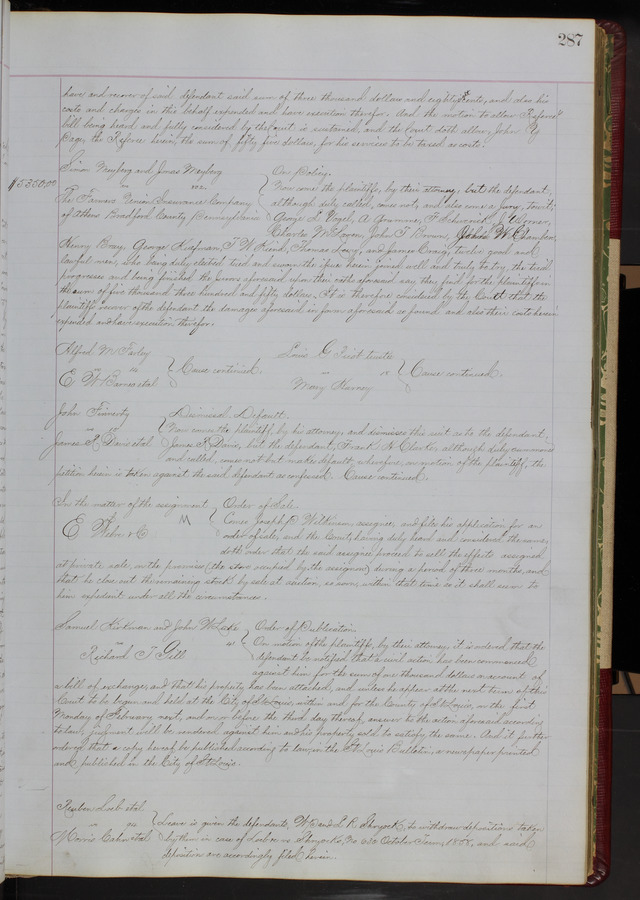 287
have and recover of said defendant said sum of three thousand dollars and eighty cents, and also his
costs and charges in this behalf expended and have execution therefor. And the motion to allow Referee's
bill being heard and fully considered by the Court is sustained, and the Court doth allow, John G
the Referee herein, the sum of fifty five dollars, for his services to be taxed as costs.
Simon Meyberg and Jonas Meyberg On Policy.
$5350.00 vs. Now come the plaintiffs, by their attorney, but the defendant,
The Farmers Union Insurance Company although duly called, comes not, and also come a jury, to wit:
of Athens Bradford County, Pennsylvania George S. Vogel, A
Charles McGovern, John T. Brown, W. Chambers
Henry George T. W. Thomas and James Craig, twelve good and
lawful men, who being duly elected, tried and sworn the issue herein joined well and truly to try, the trial
progresses and being finished the jurors aforesaid upon their oaths aforesaid say they find for the plaintiffs in
the sum of five thousand three hundred and fifty dollars. It is therefore considered by the Court that the
plaintiffs recover of the defendant the damages aforesaid in form aforesaid so found and also their costs herein
expended and have execution therefor.
Alfred M Farley Louis G Picot trustee
vs Cause continued. vs Cause continued.
E W Barnes et al Mary Harney
John Finnerty Dismissal, Default.
vs Now comes the plaintiff by his attorney, and dismisses this suit as to the defendant,
James P. Davis et al James P. Davis, but the defendant, Frank H. Clarke, although duly summoned
and called, comes not but makes default, wherefore, on motion of the plaintiff, the
petition herein is taken against the said defendant as confessed. Cause continued.
In the matter of the assignment Order of Sale.
Comes Joseph P. Wilkinson, assignee, and files his application for an
E. & Co order of sale, and the Court having duly heard and considered the same,
doth order that the said assignee proceed to sell the effects assigned
at private sale, on the premises (the store occupied by the assignor) during a period of three months, and
that he close out the remaining stock by sale at auction, as soon, within that time as it shall seem to
him expedient under all the circumstances.
Samuel Kirkman and John W. Luke Order of Publication.
vs On motion of the plaintiffs, by their attorney, it is ordered that the
Richard T Gill defendant be notified that a civil action has been commenced
against him for the sum of one thousand dollars on account of
a bill of exchange, and that his property has been attached, and unless he appear at the next term of this
Court to be begun and held at the City of St Louis, within and for the County of St Louis, on the first
Monday of February next, and on or before the third day thereof, answer to the action aforesaid according
to law, judgment will be rendered against him and his property sold to satisfy the same. And it further
ordered that a copy hereof be published according to law in the St Louis Bulletin, a newspaper printed
and published in the City of St Louis.
Reuben Loeb et al.
vs. Leave is given the defendants, W. and L. R. Shryock, to withdraw depositions taken
Morris Cahn et al by them in case of Loeb et al vs Shryocks, No 630 October Term, 1858, and said
depositions are accordingly filed herein.